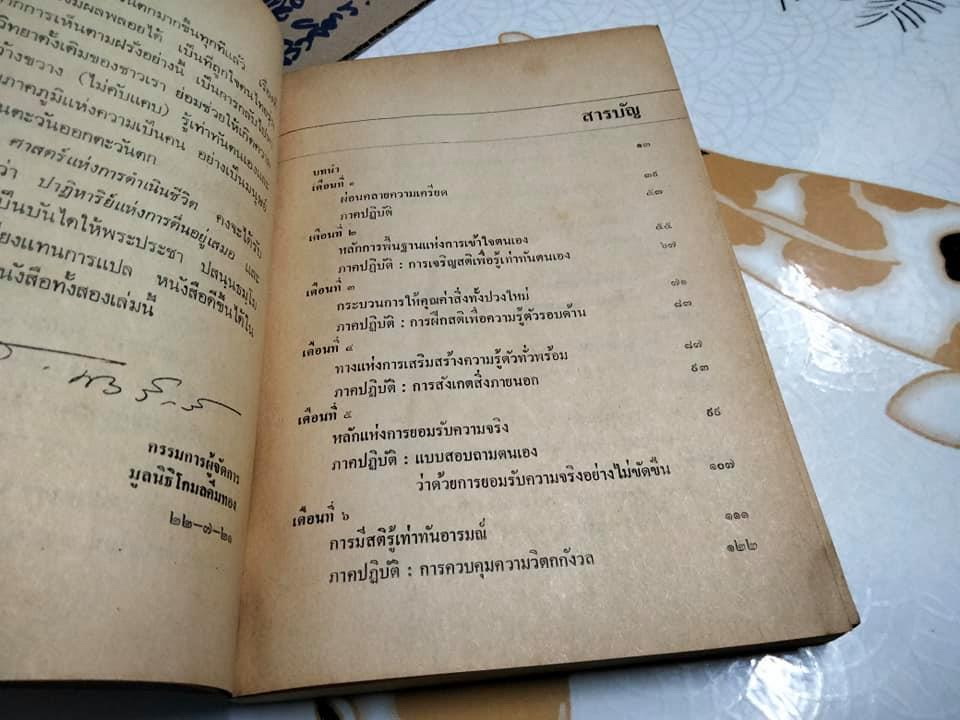 ตกมากขึ้นทุกทีแล้ว
งมีผลพลอยได้ เป็นที่ถูกใจคนไทย
ากการเห็นตามฝรั่งอย่างนี้ เป็นการกลับไป
วิทยาดั้งเดิมของชาวเรา ย่อมช่วยให้เกิดความ
ว้างขวาง (ไม่คับแคบ) รู้เท่าทันตนเองและ
ภาคภูมิแห่งความเป็นคน อย่างเป็นมนุษย์
นตะวันออกตะวันตก
ศาสตร์แห่งการดำเนินชีวิต คงจะได้รับ
ว่า ปาฏิหาริย์แห่งการตื่นอยู่เสมอ และ
ป็นบันไดให้พระประชา ปสนฺนธมฺโม
ยงแทนการแปล หนังสือดีชิ้นได้ใน
นังสือทั้งสองเล่มนี้
กรรมการผู้จัดการ
มูลนิธิโกมลคีมทอง
๒๒-๗-๒๑
สารบัญ
บทนำ ๑๓
เดือนที่ ๑
ผ่อนคลายความเครียด ๓๙
ภาคปฏิบัติ ๕๓
เดือนที่ ๒
หลักการพื้นฐานแห่งการเข้าใจตนเอง ๕๕
ภาคปฏิบัติ : การเจริญสติเพื่อรู้เท่าทันตนเอง ๖๗
เดือนที่ ๓
กระบวนการให้คุณค่าสิ่งทั้งปวงใหม่ ๗๑
ภาคปฏิบัติ : การฝึกสติเพื่อความรู้ตัวรอบด้าน ๘๓
เดือนที่ ๔
ทางแห่งการเสริมสร้างความรู้ตัวทั่วพร้อม ๘๗
ภาคปฏิบัติ : การสังเกตสิ่งภายนอก ๙๓
เดือนที่ ๕
หลักแห่งการยอมรับความจริง ๙๙
ภาคปฏิบัติ : แบบสอบถามตนเอง
ว่าด้วยการยอมรับความจริงอย่างไม่ขัดขืน ๑๐๗
เดือนที่ ๖
การมีสติรู้เท่าทันอารมณ์ ๑๑๑
ภาคปฏิบัติ : การควบคุมความวิตกกังวล ๑๒๒